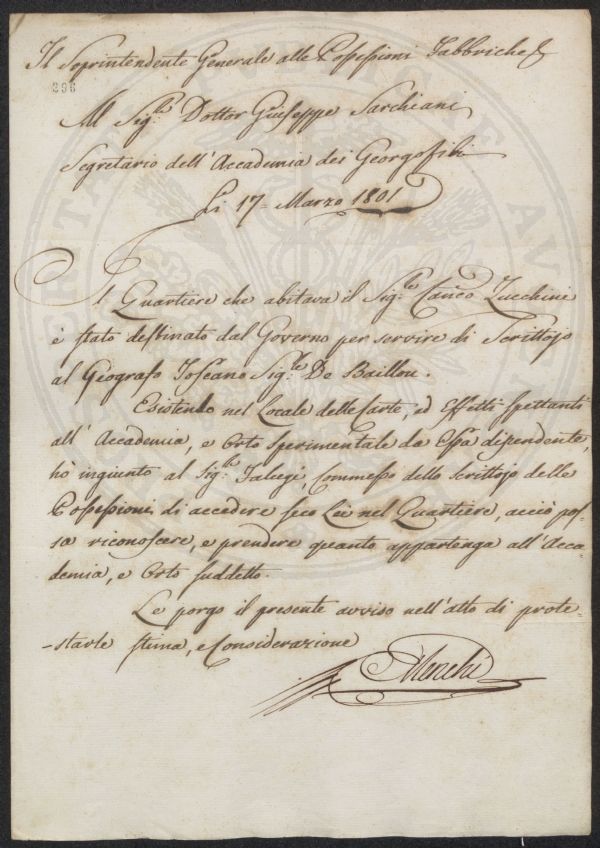 Il Soprintendente Generale alle Possessioni Fabbriche &
396
Al Sig.r Dottor Giuseppe Sarchiani
Segretario dell'Accademia dei Georgofili
Li 17= Marzo 1801
Il Quartiere che abitava il Sig.re Zucchini
è stato destinato dal Governo per servire di Scrittojo
al Geografo Toscano Sig.re De Baillou.
Esistendo nel Locale delle Carte, ed Effetti spettanti
all'Accademia, e Orto Sperimentale da Essa dipendente,
hò ingiunto al Sig.re Commesso dello Scrittojo delle
Possessioni di accedere seco Lei nel Quartiere, acciò pos-
sa riconoscere, e prendere quanto appartenga all'Acca-
demia, e Orto suddetto.
Le porgo il presente avviso nell'atto di prote-
-starle stima, e Considerazione